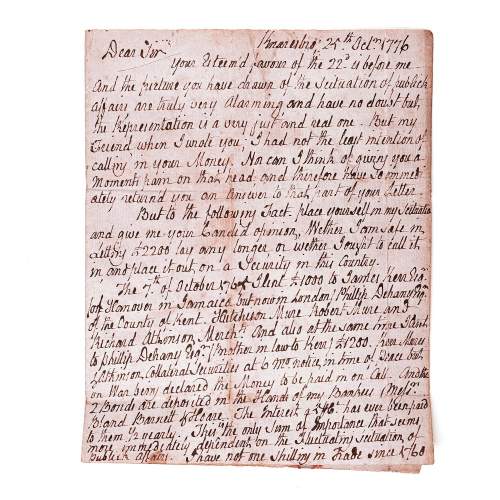 Knaresbro' 25th Octr 1776
Dear Sir
Your Esteem'd favour of the 22d is before me
and the picture you have drawn of the Scituation of publick
affairs are truly very Alarming and have no doubt but,
the Representation is a very just and real one. But my
Friend when I wrote you, I had not the least intention of
calling in your Money. Nor can I think of giving you a
Moments pain on that head and therefore have so immedi
ately return'd you an Answer to that part of your Letter
But to the following Fact. place yourself in my Scituation
and give me your Candid opinion, Wether I am safe in
Letting £2200 lay any longer or wether I ought to call it
in and place it out, on a Security in this Country.
The 7th of October I lent £1000 to James Kerr Esqr
of Hanover in Jamaica but now in London, Phillip Dehany Esqr
of the County of Kent. Hutchison Mure Robert Mure and
Richard Atkinson, Merchts. And also at the same time I lent
to Phillip Dehany Esqr (Brother in law to Kerr) £1200.
& Atkinson, Collateral Securities at 6 mo notice, in time of Peace but
on War being declared the Money to be paid on Call. And the
2 Bonds are deposited in the Hands of my Bankers (Messrs.
Bland Barnett & Hoare. The Interest has ever been paid
to them 1/2 yearly. This the only Sum of Importance that seems
more immediately dependent on the Fluctuating scituation, of
Publick affairs. I have not one Shilling in Trade since 1760